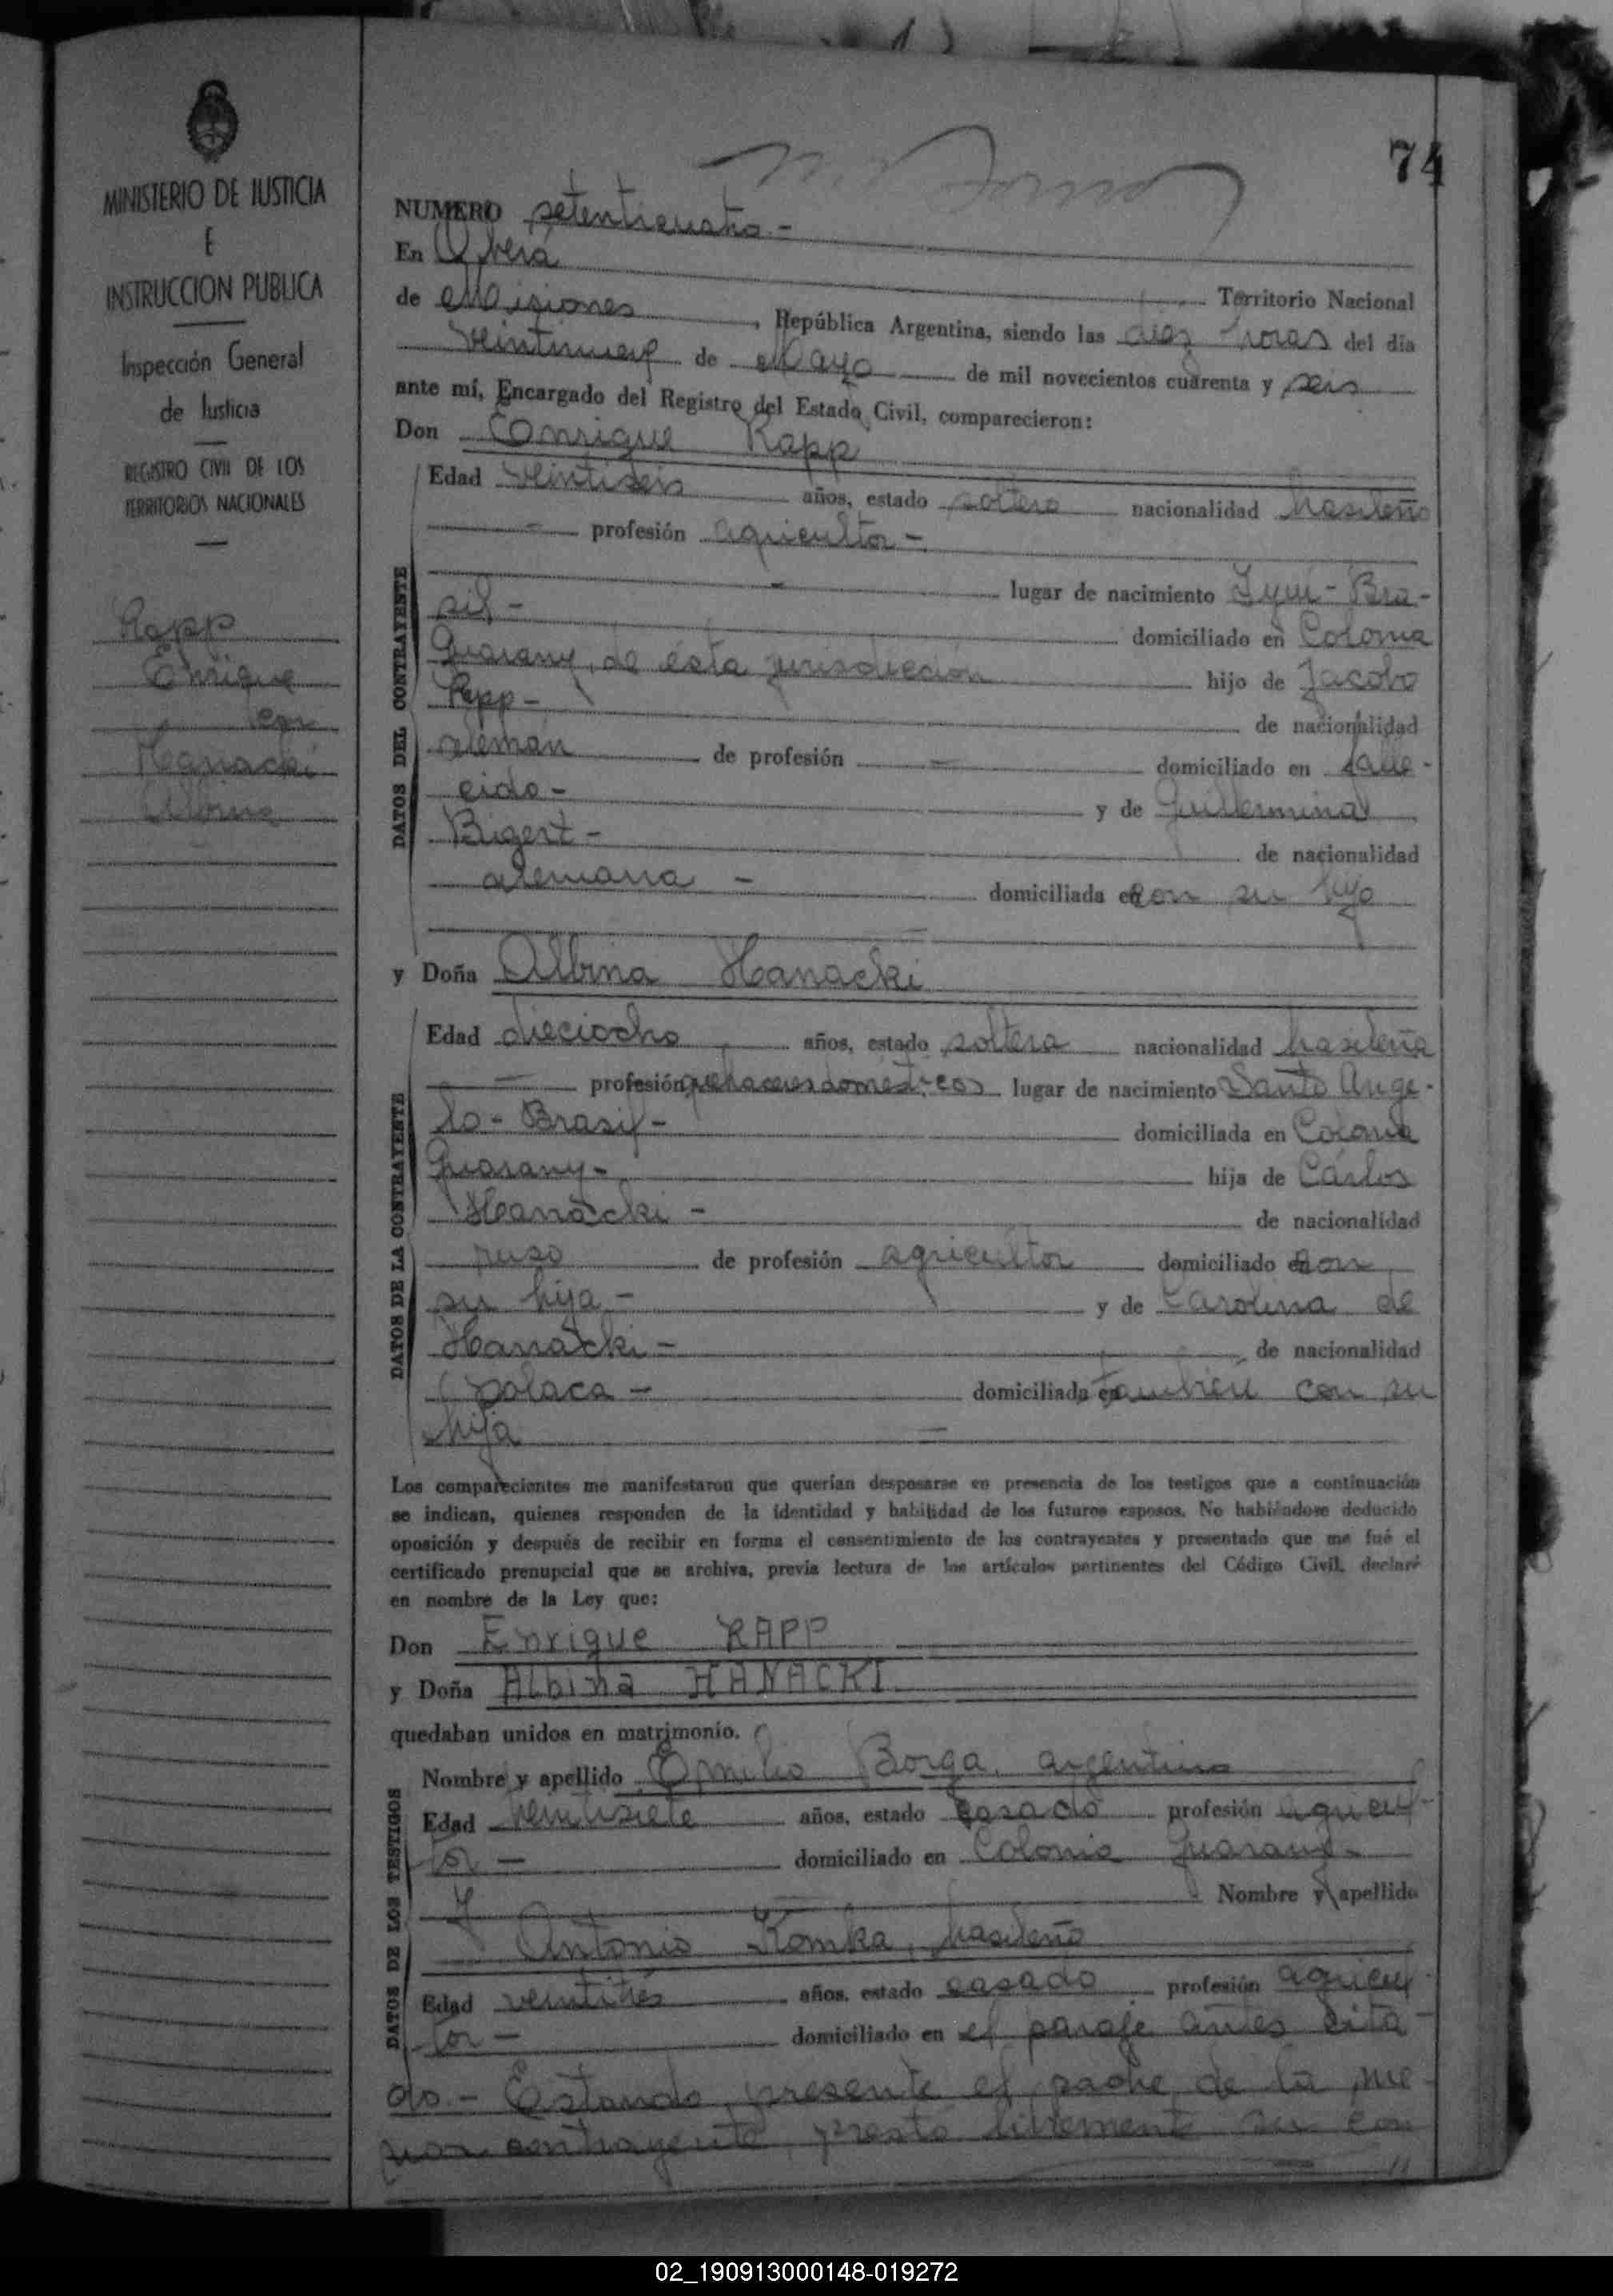 MINISTERIO DE JUSTICIA
E
INSTRUCCION PUBLICA
Inspección General
de Justicia
REGISTRO CIVIL DE LOS
TERRITORIOS NACIONALES
Rapp
Enrique
con
Hanacki
Albina
74
NUMERO setenticuatro.-
En Oberá
Territorio Nacional
de Misiones, República Argentina, siendo las diez horas del día
veintinueve de Mayo de mil novecientos cuarenta y seis
ante mí, Encargado del Registro del Estado Civil, comparecieron:
Don Enrique Rapp
DATOS DEL CONTRAYENTE
Edad veintiseis años, estado soltero nacionalidad brasileño
- profesión agricultor -
- lugar de nacimiento Ijui - Bra-
sil - domiciliado en Colonia
Guarany, de ésta jurisdicción hijo de Jacobo
Rapp - de nacionalidad
alemán de profesión - domiciliado en falle-
cido - y de Guillermina
Bigert - de nacionalidad
alemana - domiciliada en con su hijo
y Doña Albina Hanacki
DATOS DE LA CONTRAYENTE
Edad dieciocho años, estado soltera nacionalidad brasileña
- profesión quehaceres domésticos lugar de nacimiento Santo Ange-
lo - Brasil - domiciliada en Colonia
Guarany - hija de Cárlos
Hanacki - de nacionalidad
ruso de profesión agricultor domiciliado en con
su hija - y de Carolina de
Hanacki - de nacionalidad
polaca - domiciliada en también con su
hija
Los comparecientes me manifestaron que querían desposarse en presencia de los testigos que a continuación
se indican, quienes responden de la identidad y habilidad de los futuros esposos. No habiéndose deducido
oposición y después de recibir en forma el consentimiento de los contrayentes y presentado que me fué el
certificado prenupcial que se archiva, previa lectura de los artículos pertinentes del Código Civil, declaré
en nombre de la Ley que:
Don Enrique RAPP
y Doña Albina HANACKI
quedaban unidos en matrimonio.
DATOS DE LOS TESTIGOS
Nombre y apellido Emilio Borga, argentino
Edad veintisiete años, estado casado profesión agricul-
tor - domiciliado en Colonia Guarany-
y Nombre y apellido
Antonio Komka, brasileño
Edad veintitrés años, estado casado profesión agricul-
tor - domiciliado en el paraje antes cita-
do.- Estando presente el padre de la me-
nor contrayente, prestó libremente su con
02_190913000148-019272